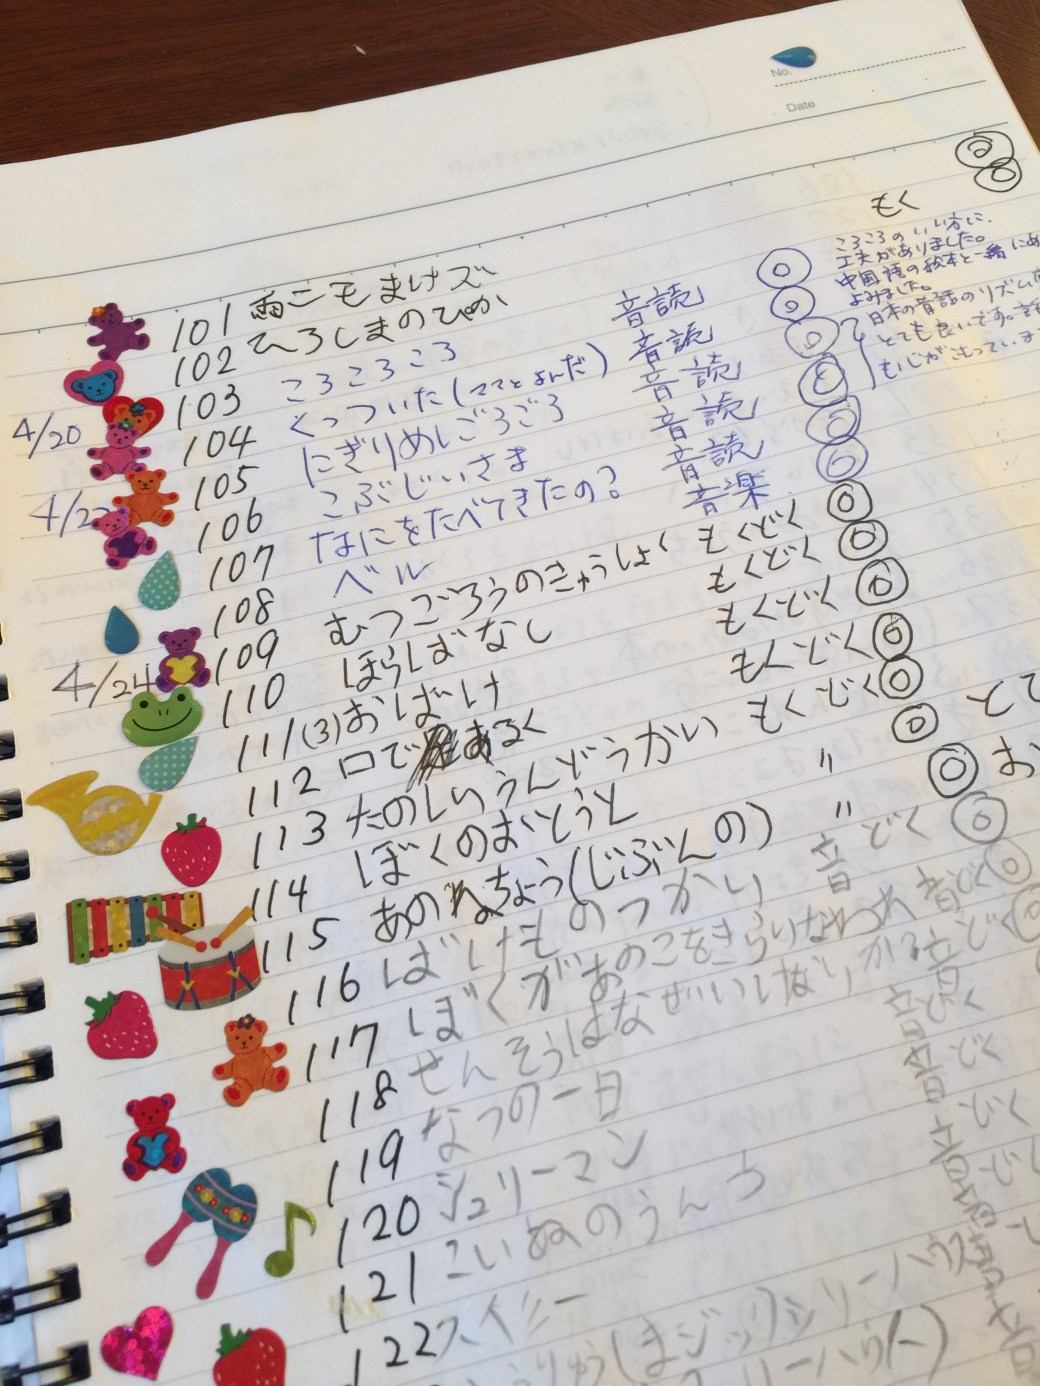 No.
Date
もく
101 雨ニモまけズ
102 ひろしまのピカ 音読
103 ころころころ 音読
4/20 104 くっついた(ママとよんだ) 音読
105 にぎりめしごろごろ 音読
106 こぶじいさま 音読
107 なにをたべてきたの? 音楽
108 ベル もくどく
109 むつごろうのきゅうしょく もくどく
4/24 110 ほらばなし もくどく
111(3)おばけ もくどく
112 口であるく もくどく
113 たのしいうんどうかい 〃 とて
114 ぼくのおとうと 〃 お
115 あのねちょう(じぶんの) 音どく
116 ばけものつかい 音どく
117 ぼくがおのこをきらいなわけ 音どく
118 せんそうはなぜいけないか? どく
119 なつの一日 どく
120 シュリーマン どく
121 こいぬのうんち
122 スイミー
ころころのいい方に、
工夫がありました。
中国語の絵本と一緒に
よみました。
日本の昔話のリズムが
とても良いです。
もじがこもっています